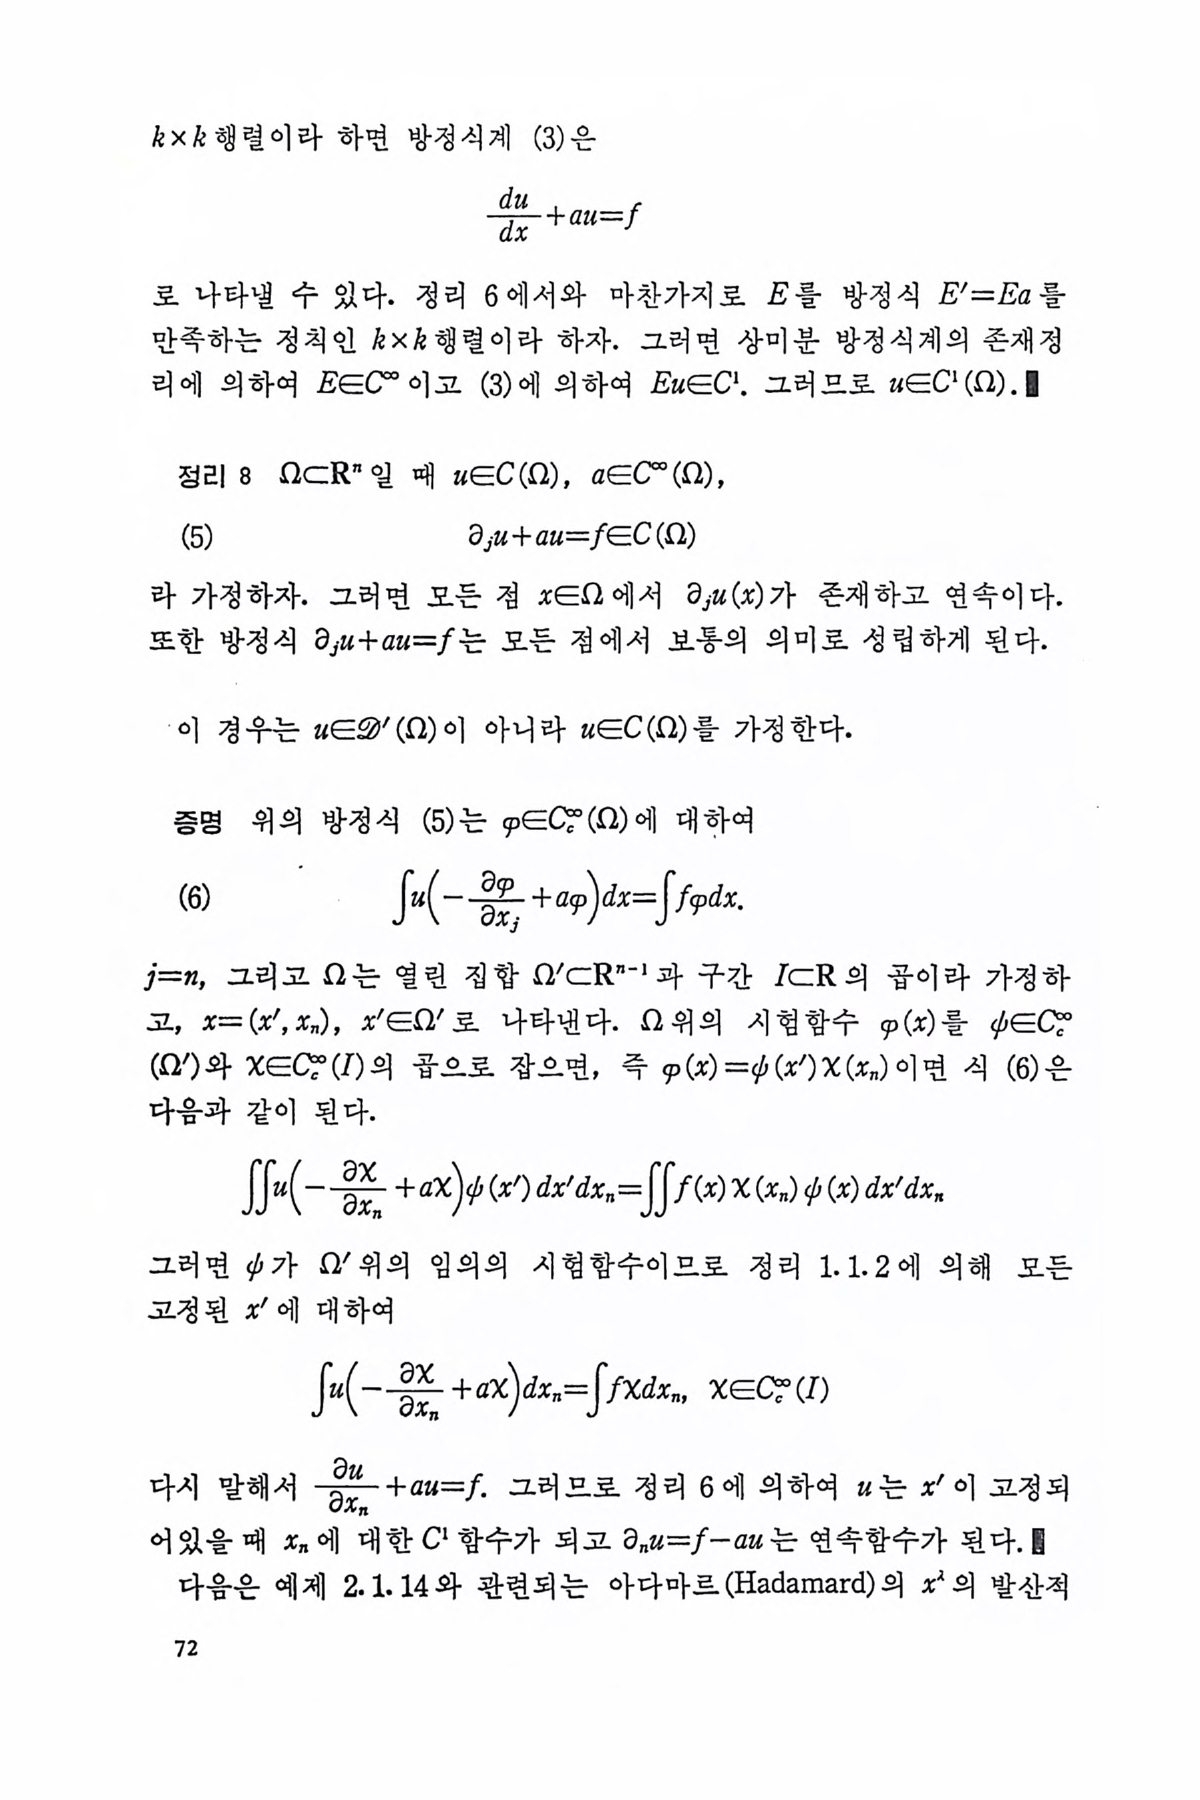 k×k행렬이라 하면 방정식계 (3)은
du/dx+au=f
로 나타낼 수 있다. 정리 6에서와 마찬가지로 E를 방정식 E′=Ea를
만족하는 정칙인 k×k행렬이라 하자. 그러면 상미분 방정식계의 존재정
리에 의하여 E∈C∞이고 (3)에 의하여 Eu∈C¹. 그러므로 u∈C¹(Ω).▮
정리 8 Ω⊂Rⁿ일 때 u∈C(Ω), a∈C∞(Ω),
(5) ∂ⱼu+au=f∈C(Ω)
라 가정하자. 그러면 모든 점 x∈Ω에서 ∂ⱼu(x)가 존재하고 연속이다.
또한 방정식 ∂ⱼu+au=f는 모든 점에서 보통의 의미로 성립하게 된다.
이 경우는 u∈𝒟′(Ω)이 아니라 u∈C(Ω)를 가정한다.
증명 위의 방정식 (5)는 φ∈C_c^∞(Ω)에 대하여
(6) ∫u(−∂φ/∂xⱼ+aφ)dx=∫fφdx.
j=n, 그리고 Ω는 열린 집합 Ω′⊂Rⁿ⁻¹과 구간 I⊂R의 곱이라 가정하
고, x=(x′, xₙ), x′∈Ω′로 나타낸다. Ω위의 시험함수 φ(x)를 ψ∈C_c^∞
(Ω′)와 χ∈C_c^∞(I)의 곱으로 잡으면, 즉 φ(x)=ψ(x′)χ(xₙ)이면 식 (6)은
다음과 같이 된다.
∬u(−∂χ/∂xₙ+aχ)ψ(x′)dx′dxₙ=∬f(x)χ(xₙ)ψ(x)dx′dxₙ
그러면 ψ가 Ω′위의 임의의 시험함수이므로 정리 1.1.2에 의해 모든
고정된 x′에 대하여
∫u(−∂χ/∂xₙ+aχ)dxₙ=∫fχdxₙ, χ∈C_c^∞(I)
다시 말해서 ∂u/∂xₙ+au=f. 그러므로 정리 6에 의하여 u는 x′이 고정되
어있을 때 xₙ에 대한 C¹함수가 되고 ∂ₙu=f−au는 연속함수가 된다.▮
다음은 예제 2.1.14와 관련되는 아다마르(Hadamard)의 x^λ의 발산적
72